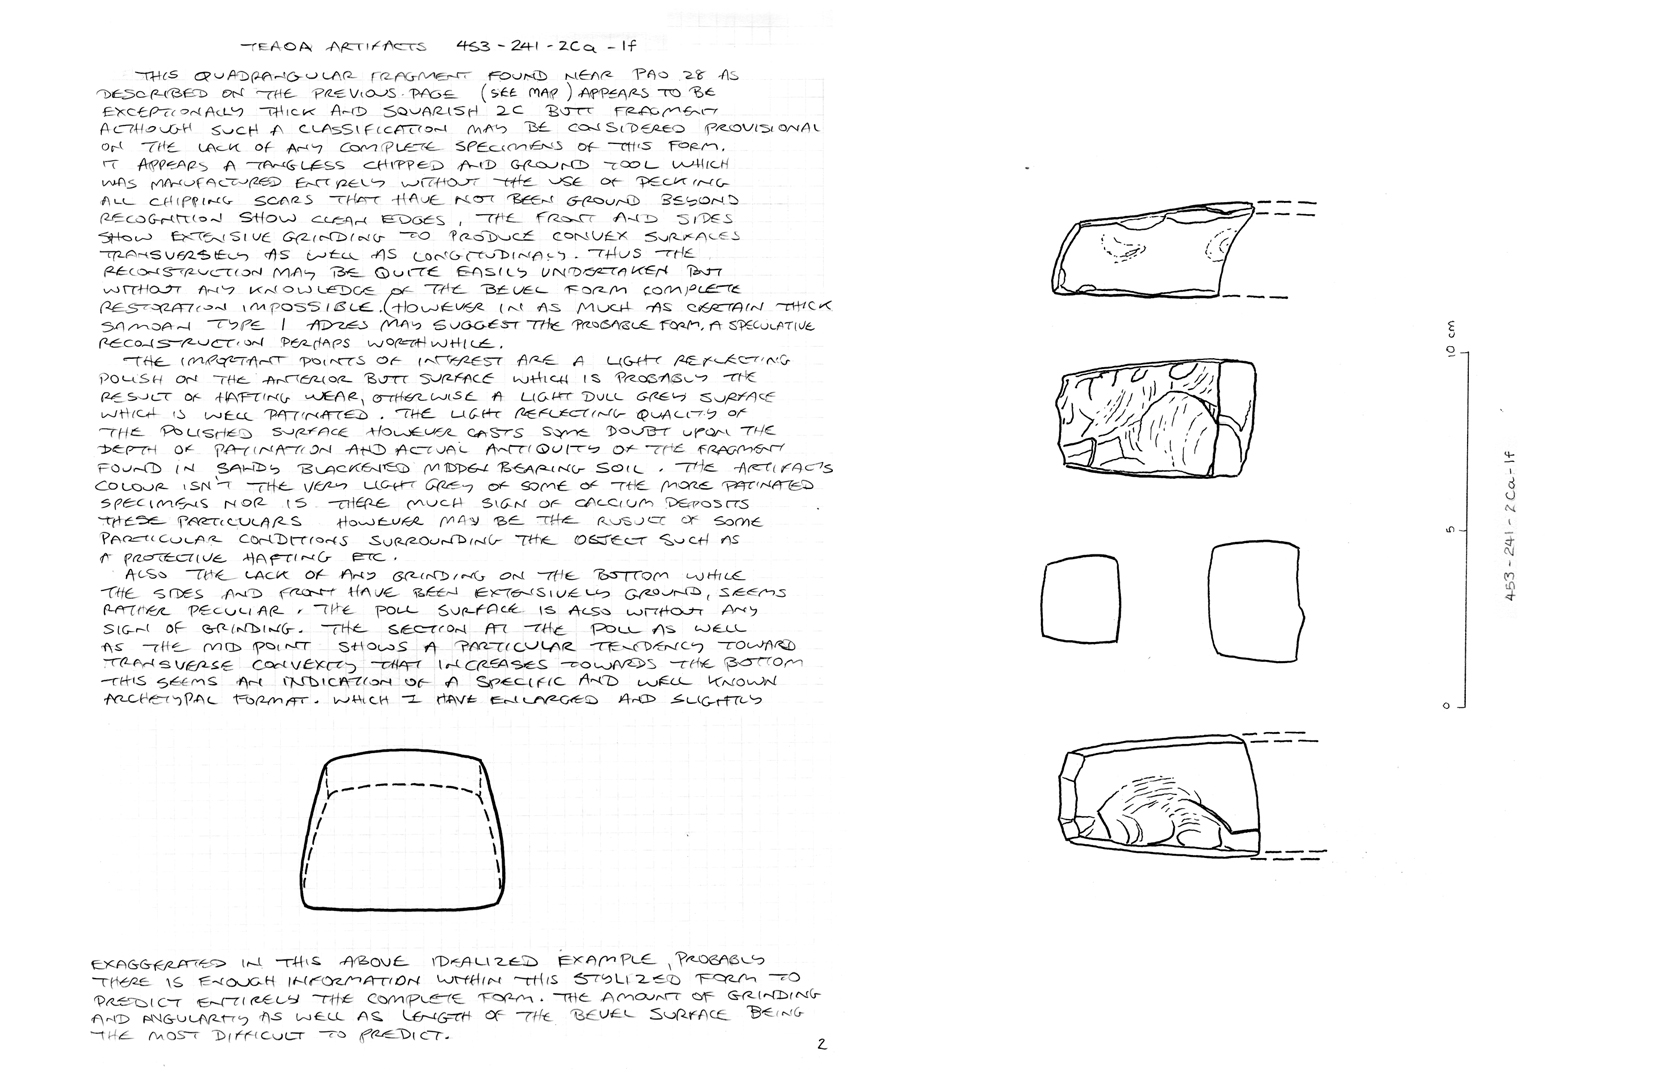 TEAOA ARTIFACTS 453-241-2Ca-1f
THIS QUADRANGULAR FRAGMENT FOUND NEAR PAO 28 AS
DESCRIBED ON THE PREVIOUS PAGE (SEE MAP) APPEARS TO BE
EXCEPTIONALLY THICK AND SQUARISH 2C BUTT FRAGMENT
ALTHOUGH SUCH A CLASSIFICATION MAY BE CONSIDERED PROVISIONAL
ON THE LACK OF ANY COMPLETE SPECIMENS OF THIS FORM.
IT APPEARS A TANGLESS CHIPPED AND GROUND TOOL WHICH
WAS MANUFACTURED ENTIRELY WITHOUT THE USE OF PECKING
ALL CHIPPING SCARS THAT HAVE NOT BEEN GROUND BEYOND
RECOGNITION SHOW CLEAN EDGES, THE FRONT AND SIDES
SHOW EXTENSIVE GRINDING TO PRODUCE CONVEX SURFACES
TRANSVERSELY AS WELL AS LONGITUDINALY. THUS THE
RECONSTRUCTION MAY BE QUITE EASILY UNDERTAKEN BUT
WITHOUT ANY KNOWLEDGE OF THE BEVEL FORM COMPLETE
RESTORATION IMPOSSIBLE. (HOWEVER IN AS MUCH AS CERTAIN THICK
SAMOAN TYPE 1 ADZES MAY SUGGEST THE PROBABLE FORM, A SPECULATIVE
RECONSTRUCTION PERHAPS WORTHWHILE.
THE IMPORTANT POINTS OF INTEREST ARE A LIGHT REFLECTING
POLISH ON THE ANTERIOR BUTT SURFACE WHICH IS PROBABLY THE
RESULT OF HAFTING WEAR, OTHERWISE A LIGHT DULL GREY SURFACE
WHICH IS WELL PATINATED. THE LIGHT REFLECTING QUALITY OF
THE POLISHED SURFACE HOWEVER CASTS SOME DOUBT UPON THE
DEPTH OF PATINATION AND ACTUAL ANTIQUITY OF THE FRAGMENT
FOUND IN SANDY BLACKENED MIDDEN BEARING SOIL. THE ARTIFACTS
COLOUR ISN'T THE VERY LIGHT GREY OF SOME OF THE MORE PATINATED
SPECIMENS NOR IS THERE MUCH SIGN OF CALCIUM DEPOSITS
THESE PARTICULARS HOWEVER MAY BE THE RUSULT OF SOME
PARTICULAR CONDITIONS SURROUNDING THE OBJECT SUCH AS
A PROTECTIVE HAFTING ETC.
ALSO THE LACK OF ANY GRINDING ON THE BOTTOM WHILE
THE SIDES AND FRONT HAVE BEEN EXTENSIVELY GROUND, SEEMS
RATHER PECULIAR, THE POLL SURFACE IS ALSO WITHOUT ANY
SIGN OF GRINDING. THE SECTION AT THE POLL AS WELL
AS THE MID POINT SHOWS A PARTICULAR TENDENCY TOWARD
TRANSVERSE CONVEXITY THAT INCREASES TOWARDS THE BOTTOM
THIS SEEMS AN INDICATION OF A SPECIFIC AND WELL KNOWN
ARCHETYPAL FORMAT. WHICH I HAVE ENLARGED AND SLIGHTLY
EXAGGERATED IN THIS ABOVE IDEALIZED EXAMPLE, PROBABLY
THERE IS ENOUGH INFORMATION WITHIN THIS STYLIZED FORM TO
PREDICT ENTIRELY THE COMPLETE FORM. THE AMOUNT OF GRINDING
AND ANGULARITY AS WELL AS LENGTH OF THE BEVEL SURFACE BEING
THE MOST DIFFICULT TO PREDICT.
2
10 cm
5
0
453-241-2Ca-1f